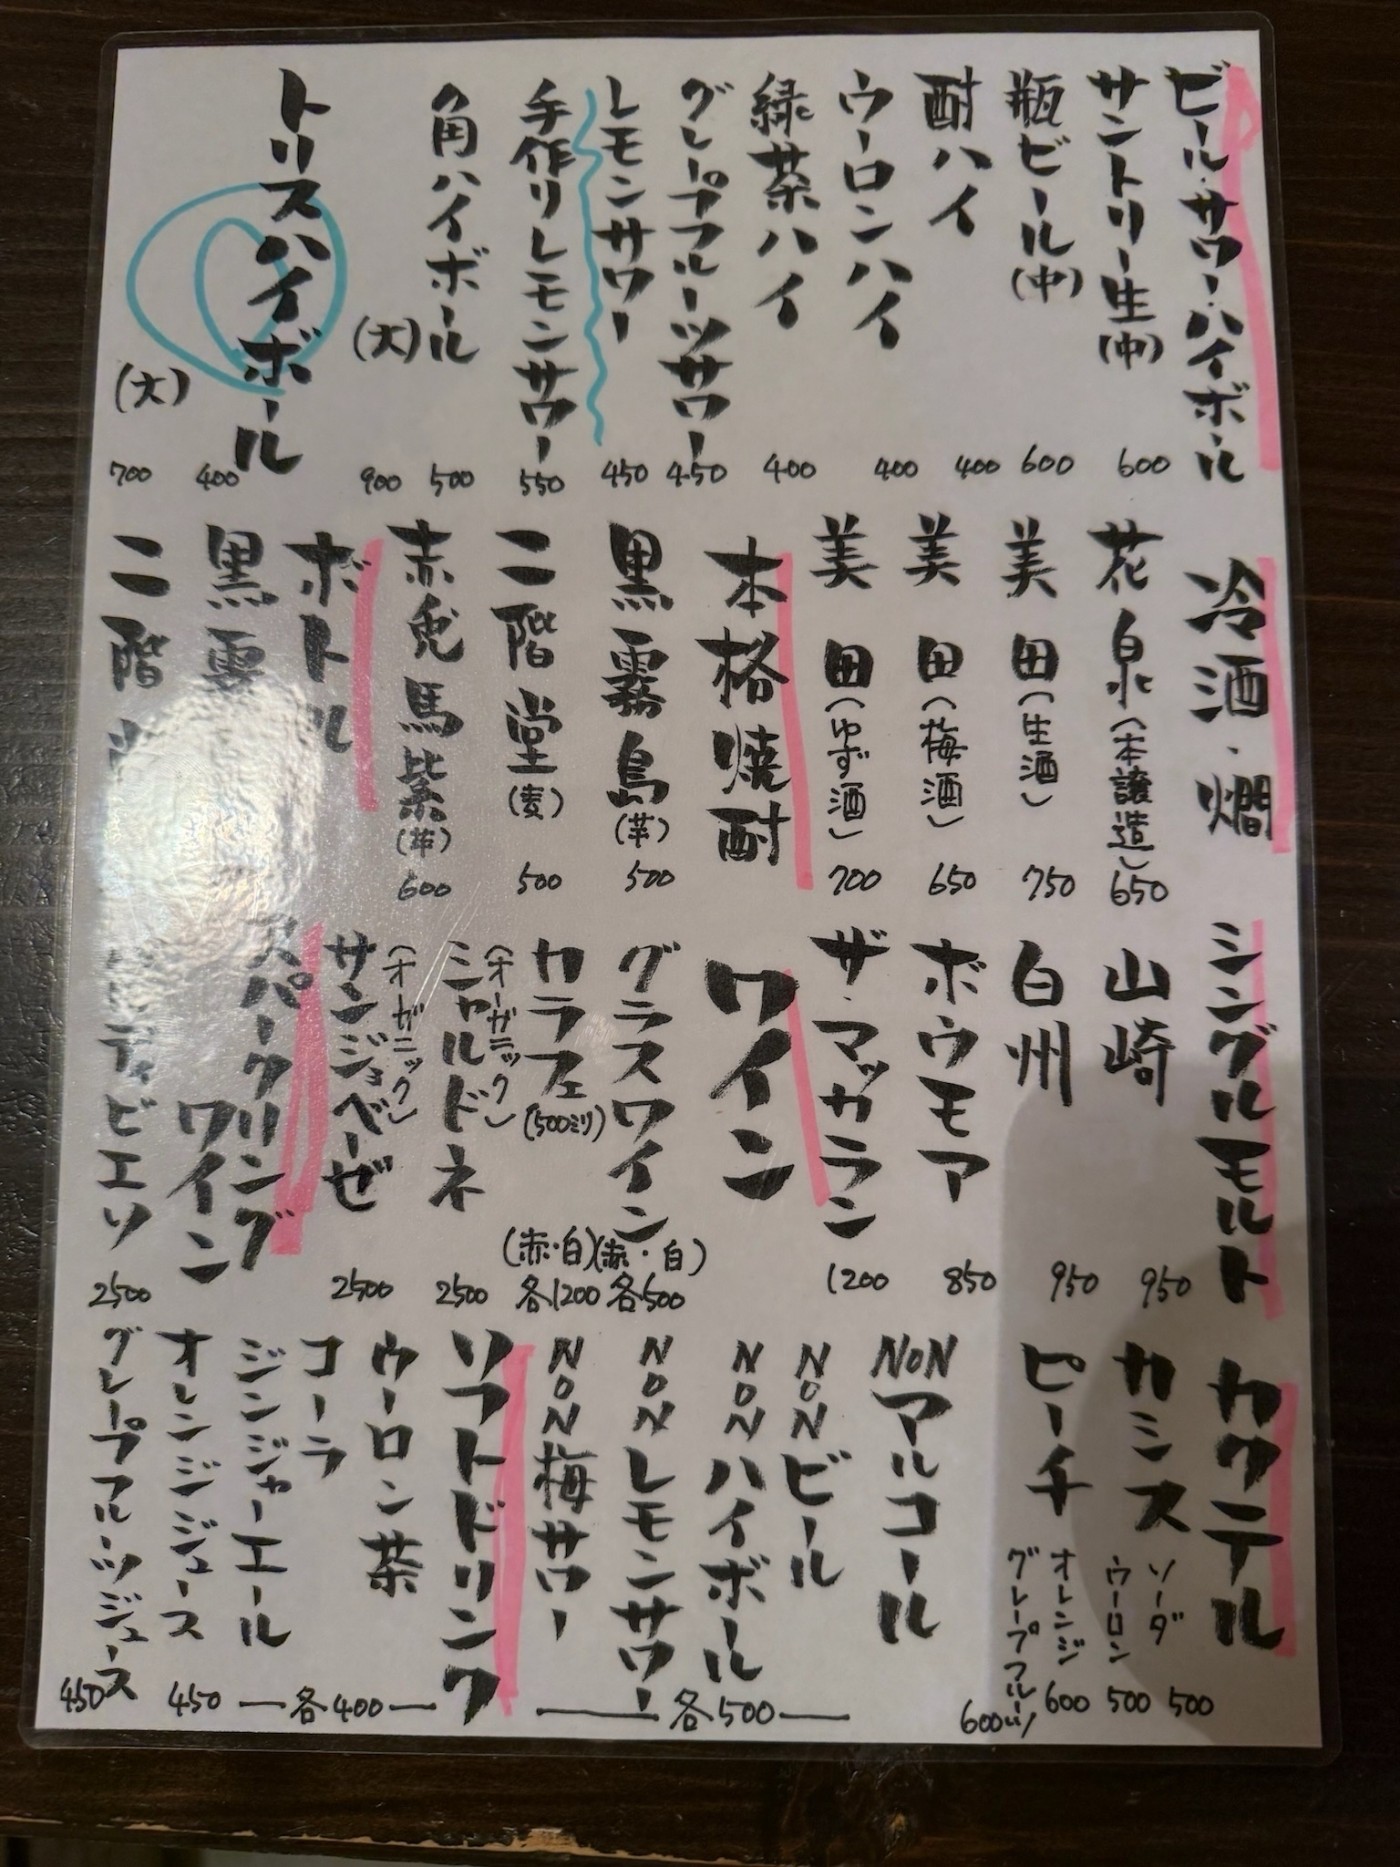 ビール・サワー・ハイボール
サントリー生(中) 600
瓶ビール(中) 600
酎ハイ 400
ウーロンハイ 400
緑茶ハイ 400
グレープフルーツサワー 450
レモンサワー 450
手作りレモンサワー 550
角ハイボール 500
(大) 900
トリスハイボール 400
(大) 700
冷酒・燗
花泉(本譲造) 650
美田(生酒) 750
美田(梅酒) 650
美田(ゆず酒) 700
本格焼酎
黒霧島(芋) 500
二階堂(麦) 500
赤兎馬紫(芋) 600
ボトル
黒霧
二階
シングルモルト
山崎 950
白州 950
ボウモア 850
ザ・マッカラン 1200
ワイン
グラスワイン(赤・白) 各500
カラフェ(500ミリ)(赤・白) 各1200
(オーガニック)
シャルドネ 2500
(オーガニック)
サンジョベーゼ 2500
スパークリング
ワイン
ディビエソ 2500
カクテル
カシス ソーダ 500
ウーロン 500
ピーチ オレンジ 600
グレープフルーツ 600
NONアルコール
NONビール
NONハイボール
NONレモンサワー
NON梅サワー
各500
ソフトドリンク
ウーロン茶
コーラ
ジンジャーエール
各400
オレンジジュース 450
グレープフルーツジュース 450